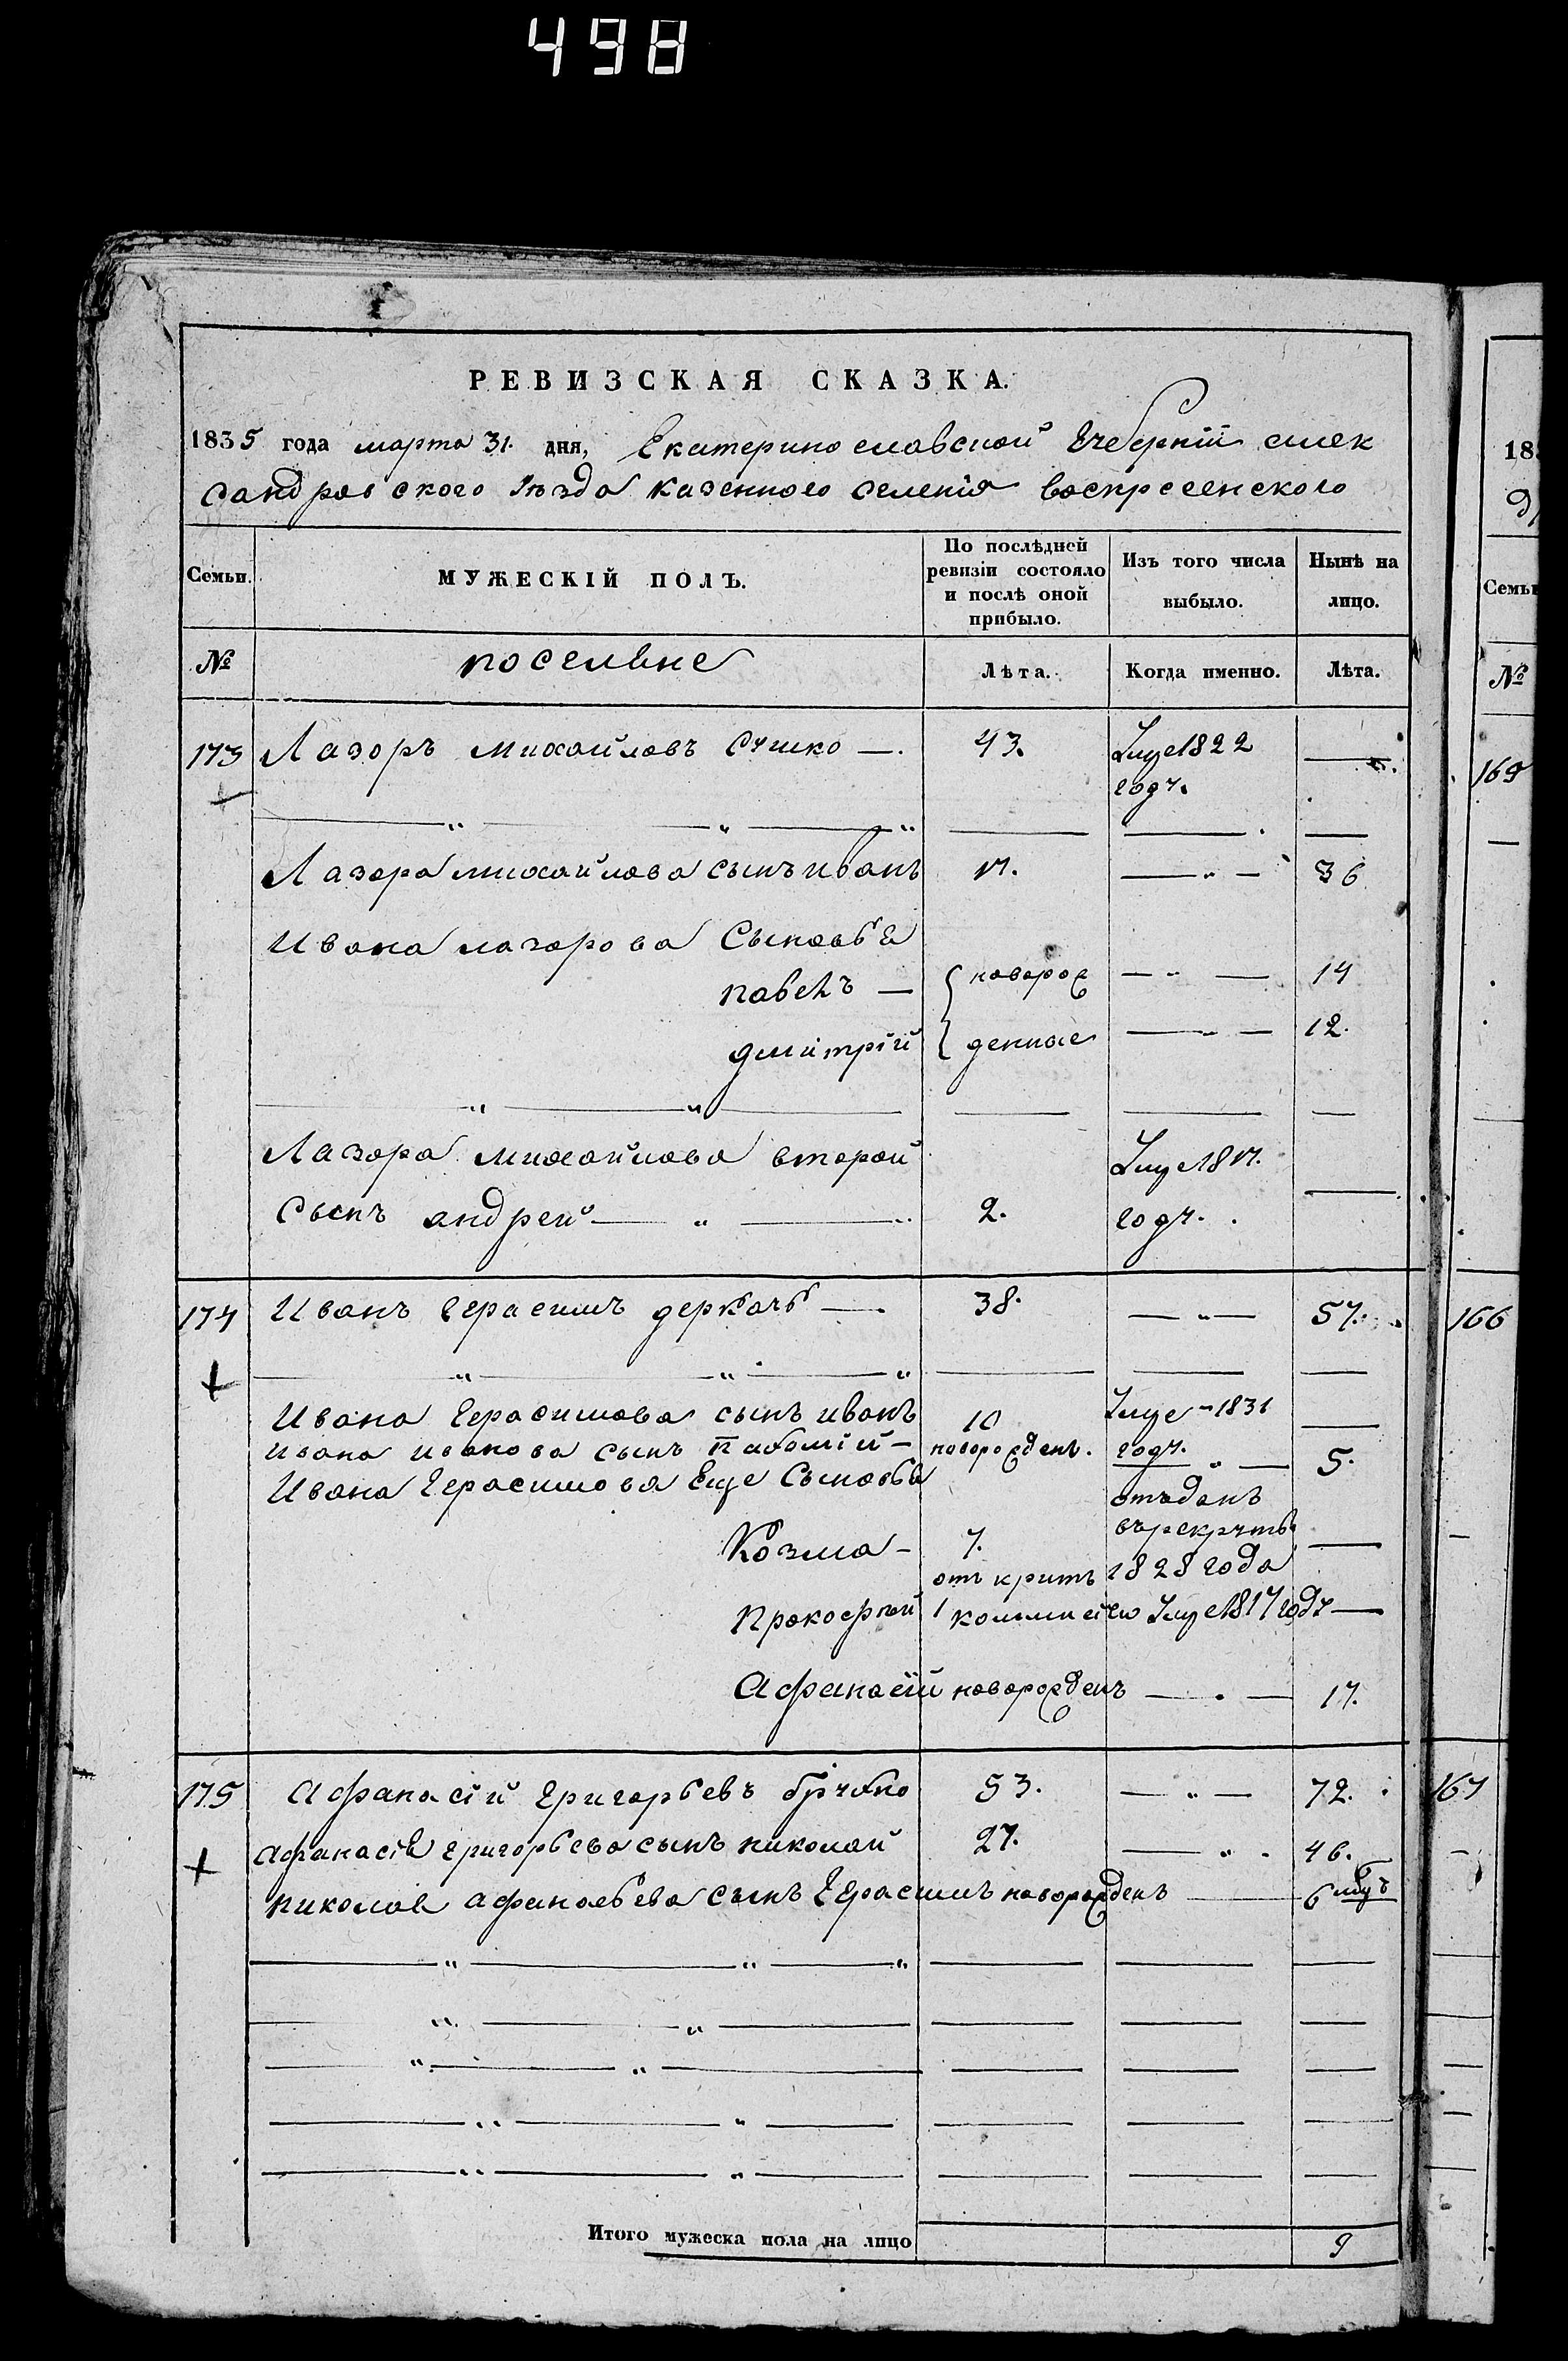 498
РЕВИЗСКАЯ СКАЗКА.
1835 года марта 31. дня, Екатеринославской Губерніи алек
сандровского уѣзда казенного селенія воскресенского
Семьи. МУЖЕСКІЙ ПОЛЪ. По послѣдней ревизіи состояло и послѣ оной прибыло. Изъ того числа выбыло. Нынѣ на лицо.
№ поселяне Лѣта. Когда именно. Лѣта.
173 Лазоръ михайловъ 43. Умре 1822 —
году.
Лазора михайлова сынъ иванъ 17. — " — 36
Ивана лазорова Сыновья
павелъ — новорож — " — 14
дмитрій денные — " — 12.
Лазора михайлова второй Умре 1817.
Сынъ андрей — " — 2. году. —
174 Иванъ Герасимъ деркачь — 38. — " — 57.
Ивана Герасимова сынъ иванъ 10 Умре - 1831 —
ивана иванова сынъ — новорожденъ. году. " — 5.
Ивана Герасимова Еще Сыновья отъданъ
въ рекруты
Козма - 7. 1828 года —
открытъ
прокофий 1 коммисіею Умре 1817 году —
Афанасій новорожденъ — " — 17.
175 Афанасій Григорьевъ 53. — " — 72.
Афанасія григорьева сынъ николай 27. — " 46.
николая афанасьева сынъ Герасимъ новорожденъ — 6
Итого мужеска пола на лицо 9
183
Семьи
№
169
166
167